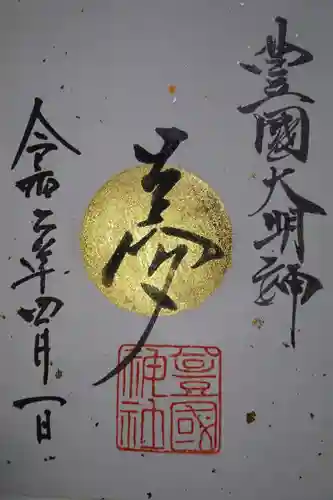 豊國大明神
夢
豊國神社
令和二年四月一日